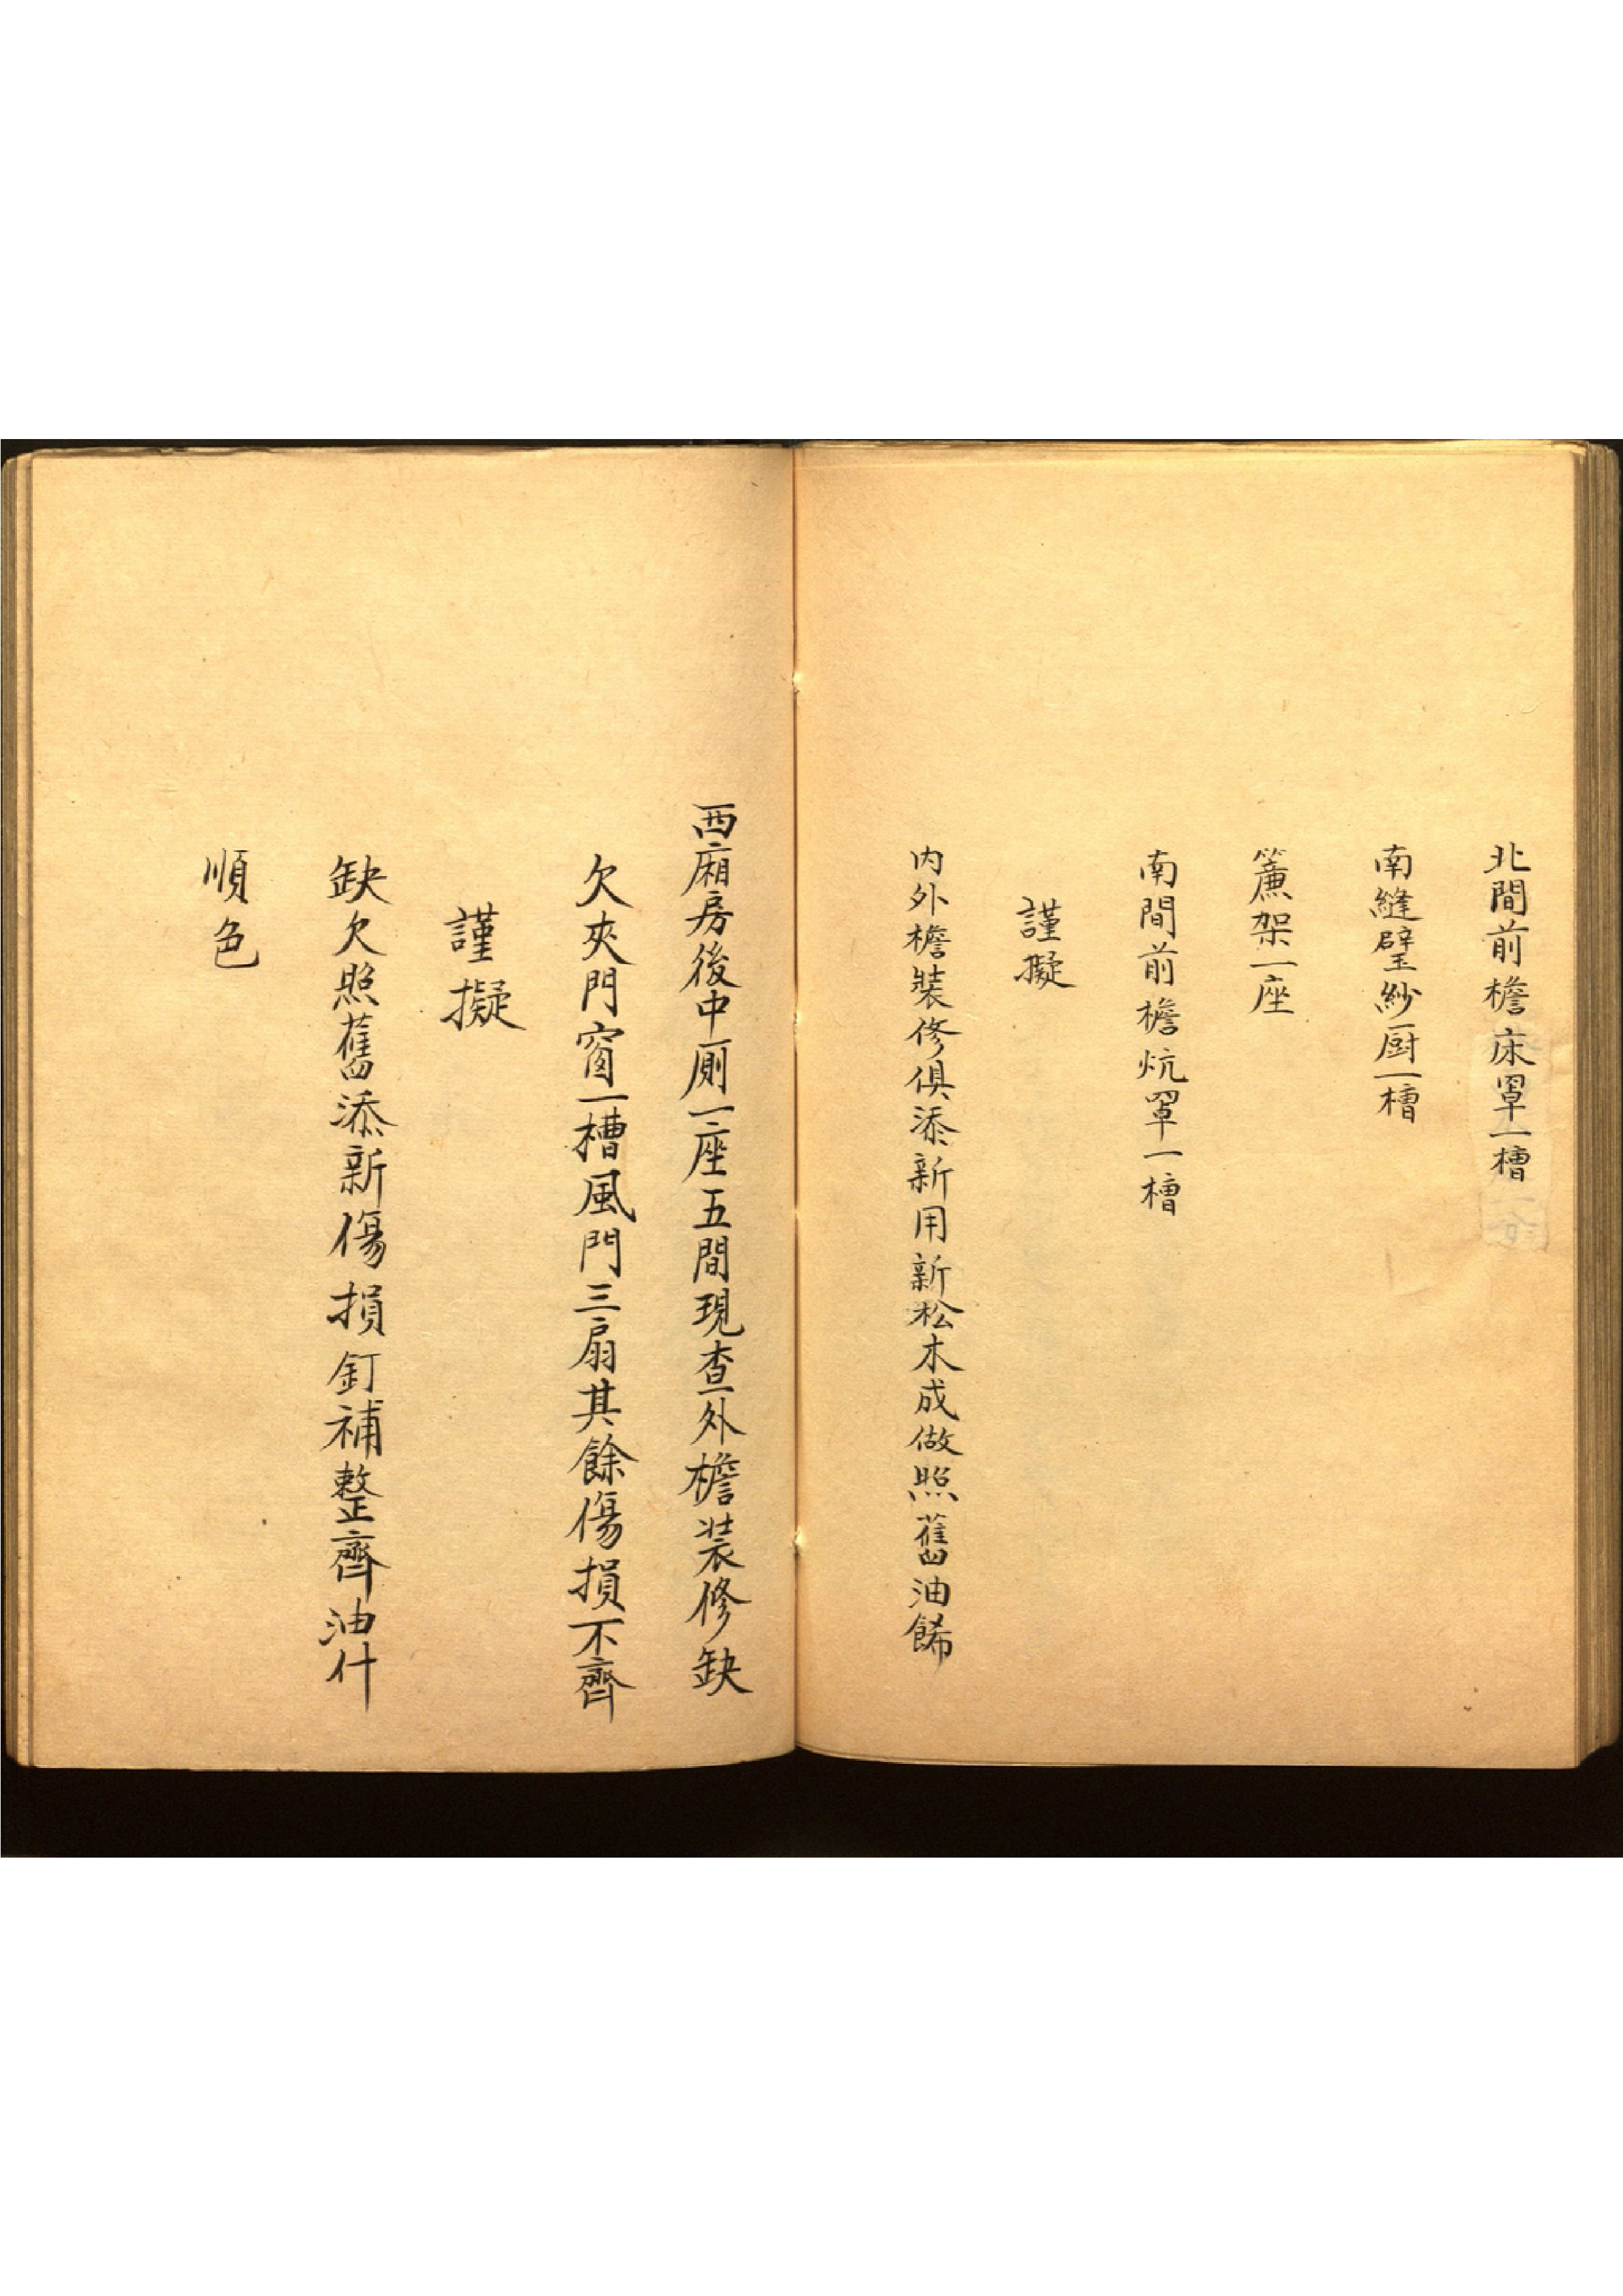 北間前檐床罩一槽
南縫璧紗厨一槽
簾架一座
南間前檐炕罩一槽
謹擬
内外檐裝修俱添新用新松木成做照舊油餙
西廂房後中厠一座五間現查外檐装修缺
欠夾門窗一槽風門三扇其餘傷損不齊
謹擬
缺欠照舊添新傷損釘補整齊油什
順色